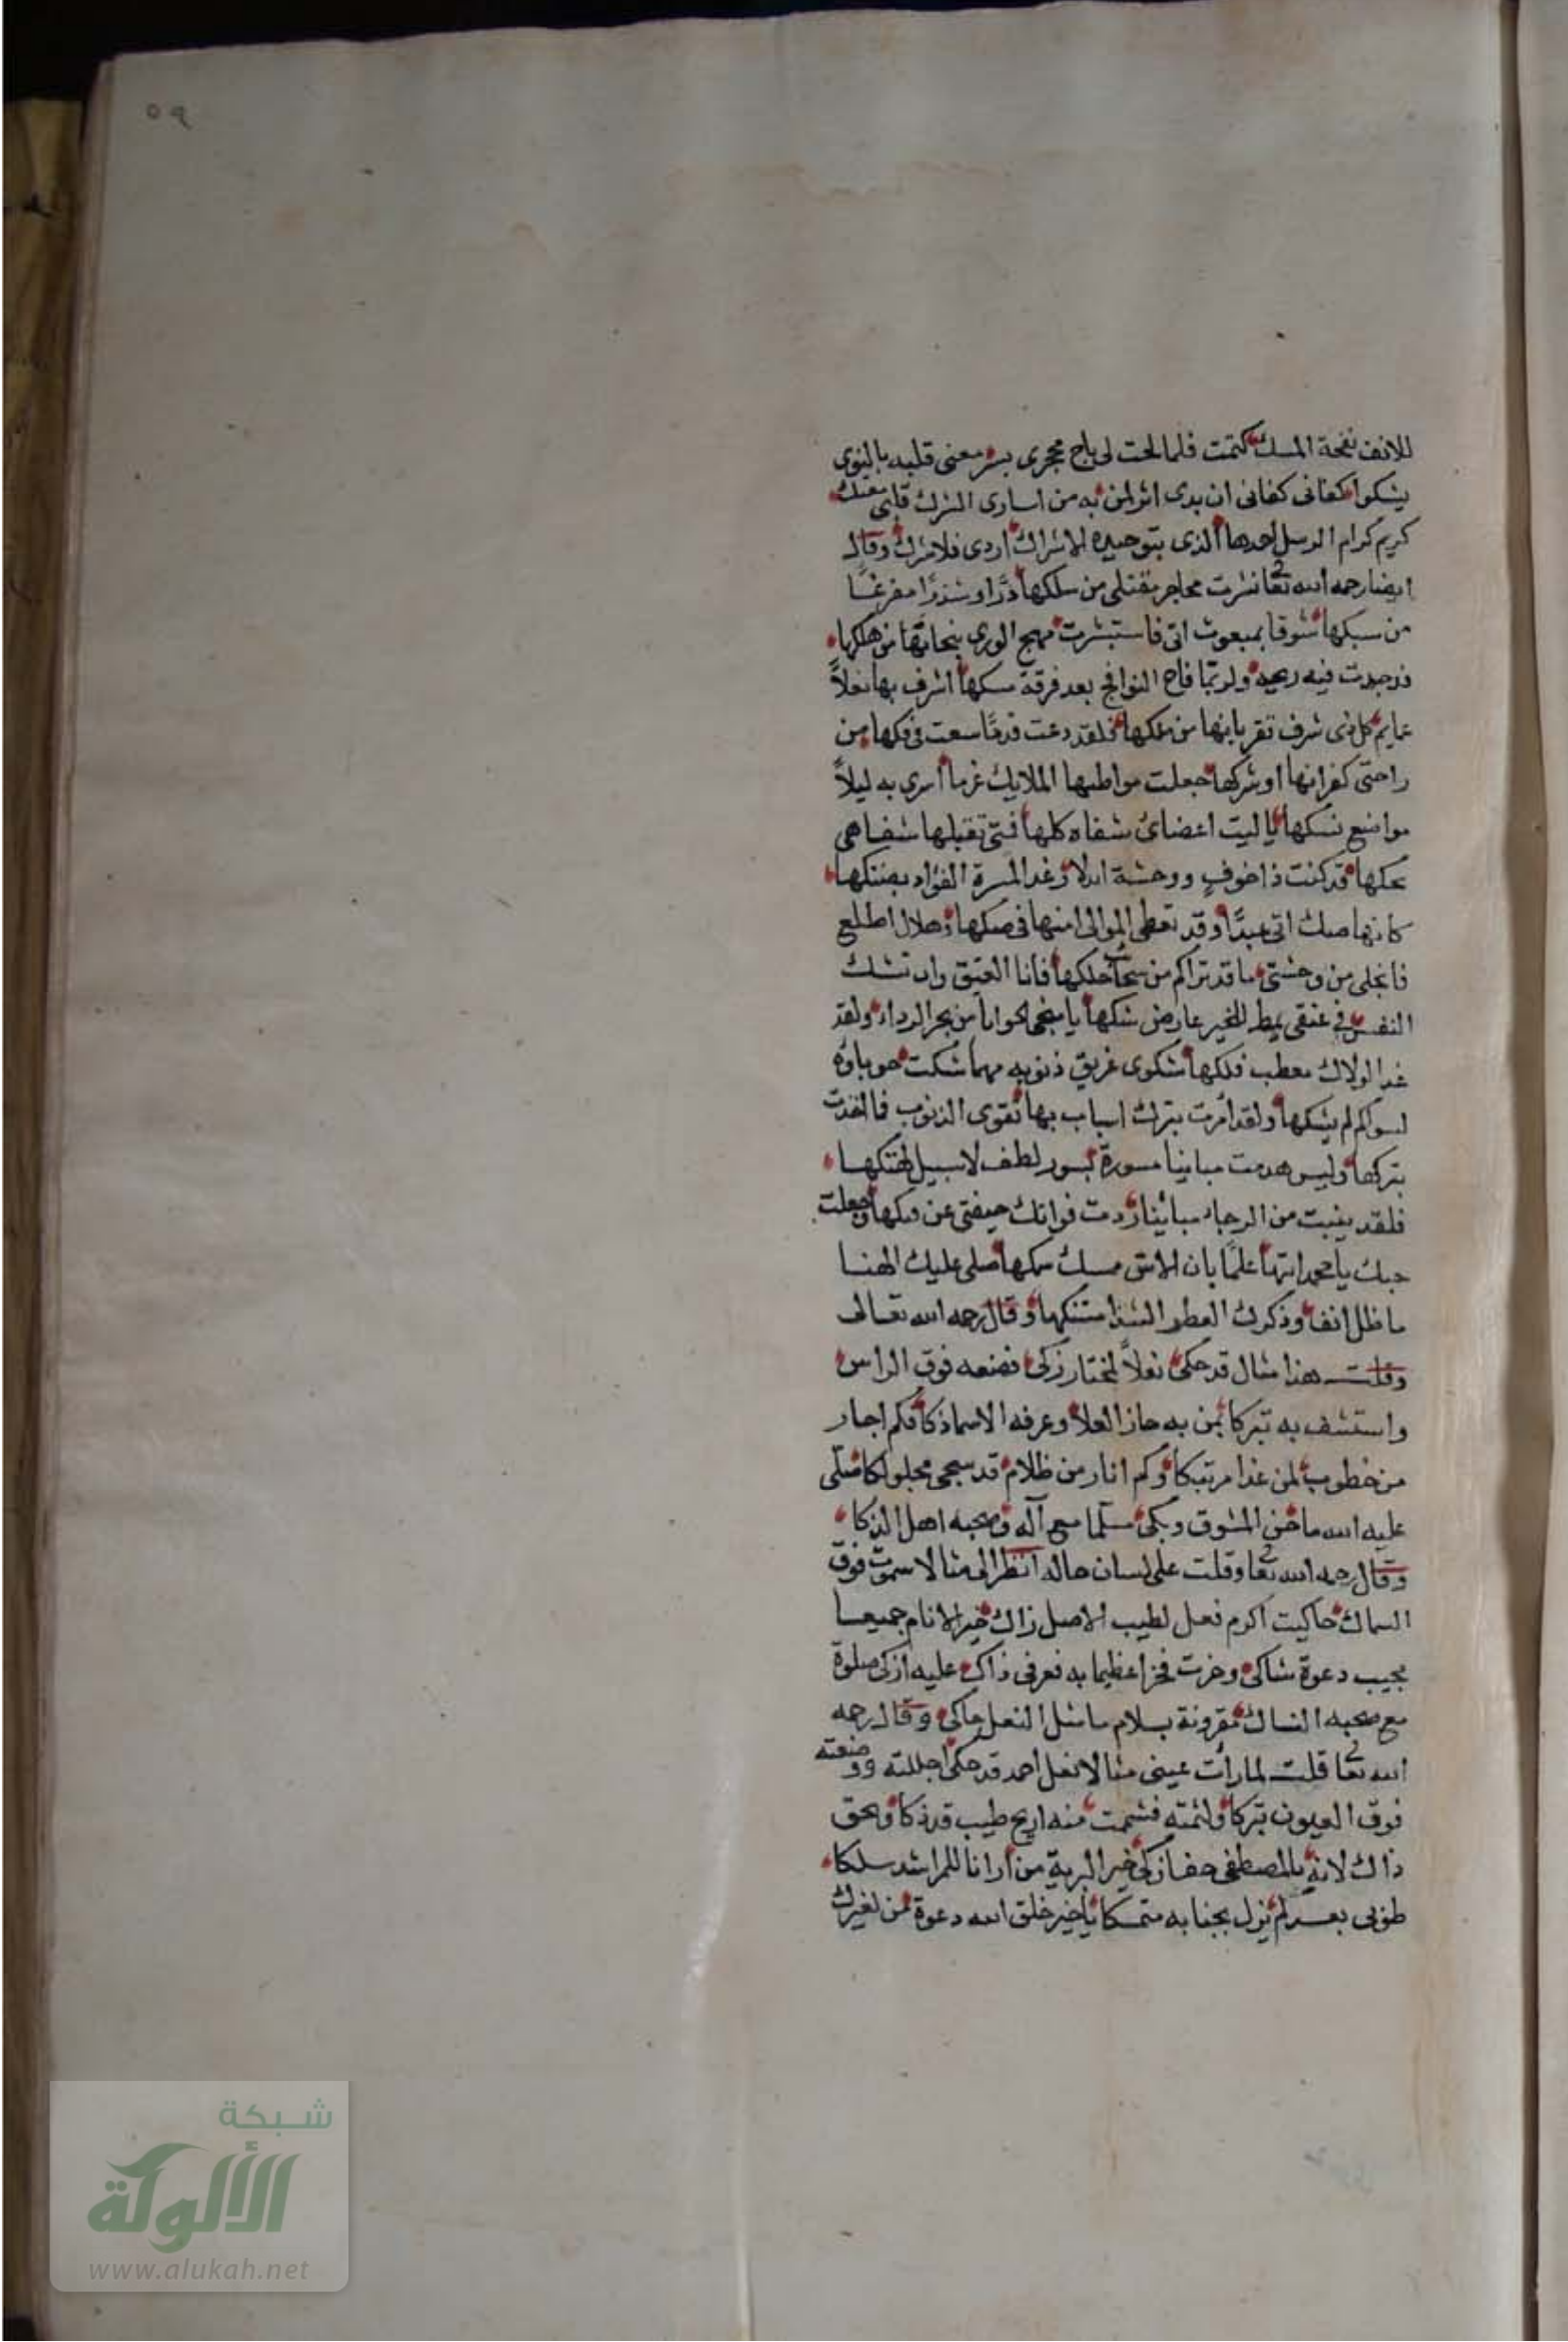 ٥٩
للانف نفحة المسك كتمت فلما لحت لى باح محجرى بسر معنى قلبه بالنوى
يشكوا كفانى كفانى ان بدى اثر لمن به من اسارى الترك قلبى معتك
كريم كرام الرسل احمدها الذى بتوحيده الاشراك اردى فلا شرك وقال
ايضا رحمه الله تعا نثرت محاجر مقتلى من سلكها درًا وشذرًا مفرغًا
من سبكها شوقا بمبعوث اتى فاستبشرت مهج الورى بنجاتها من هلكها
فوجدت فيه ريحه ولربما فاح النوافج بعد فرقة مسكها اشرف بها نعلاً
عمايم كل ذى شرف تقر بانها من ملكها فلقد دعت قدمًا سعت فى فكها من
راحتى كفرانها او شركها جعلت مواطيها الملايك غرما اسرى به ليلاً
مواضع نسكها يا ليت اعضائ شفاه كلها فتى تقبلها شفاهى
تحكها قد كنت ذا خوفٍ ووحشة وغد المسرة الفؤاد بضنكها
كانها صك اتى عبدًا وقد تعطى الموالى امنها فى صكها هلال اطلع
فانجلى من وحشتى ما قد تراكم من سحاب حلكها فانا العتيق وان تشك
النفس فى عتقى يمط للخير عارض شكها يا منجى من بحر الرداء ولقد
غدا لولاك معطب فلكها شكوى غريق ذنوبه مهما شكت حوباؤه
لسواكم لم يشكها ولقد امرت بترك اسباب بها تقوى الذنوب فما اغدت
بتركها وليس هدمت مبانينا مسورة بسور لطف لا سبيل لهتكها
فلقد بنيت من الرجاء مبانينا فواتك عن فكها وجعلت
حبك يا محمد علمًا بان مسك سمكها صلى عليك الهنا
ما ظل انف وذكرك العطر الشذا مستنكها وقال رحمه الله تعالى
وقلت هذا مثال قد حكى نعلاً لمختار زكى فضعه فوق الراس
واستشف به تبركا بمن به حاز العلا وعرفه الاسما ذكا فكم اجار
من خطوب لمن غدا مرتبكا وكم انار من ظلام قد سجى محلولكا صلى
عليه الله ما حن المشوق وبكى مسلما مع آله وصحبه اهل الذكا
وقال رحمه الله تعا وقلت على لسان حاله انظر الى مثالا سموت فوق
السماك حاكيت اكرم نعل لطيب الاصل زاك خير الانام جميعا
مجيب دعوة شاكى وحزت فخرا عظيما به فعرفى ذاك عليه ازكى صلوة
مع صحبه النساك مقرونة بسلام ما مثل النعل حاكى وقال رحمه
الله تعا قلت لما رأت عينى مثالا نعل احمد قد حكى اجللته ووضعته
فوق العيون تبركا ولثمته فشممت منه اريح طيب قد ذكا وبحق
ذاك لانه بالمصطفى حقا زكى خير البرية من ارانا للمراشد سلكا
طوبى بعبد لم يزل بجنابه متمسكا يا خير خلق الله دعوة من لغيرك
شبكة
الألوكة
www.alukah.net